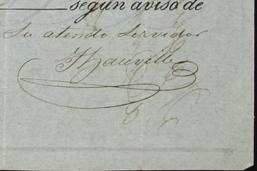 segun aviso de
Su atento Servidor